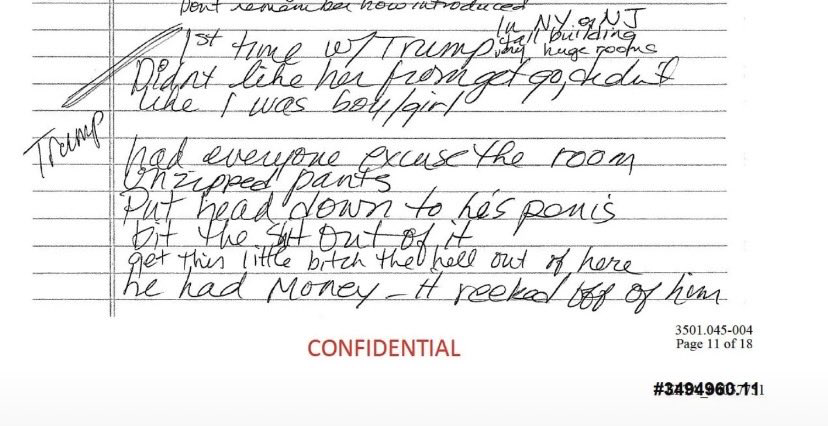 Dont remember how introduced
In NY or NJ
tall building
very huge rooms
1st time w/ Trump
Didnt like her from get go, didn't
like I was boy/girl
Trump
had everyone excuse the room
Unzipped pants
Put head down to he's penis
bit the shit out of it
get this little bitch the hell out of here
he had Money - It reeked off of him
3501.045-004
Page 11 of 18
CONFIDENTIAL
#3494960.11